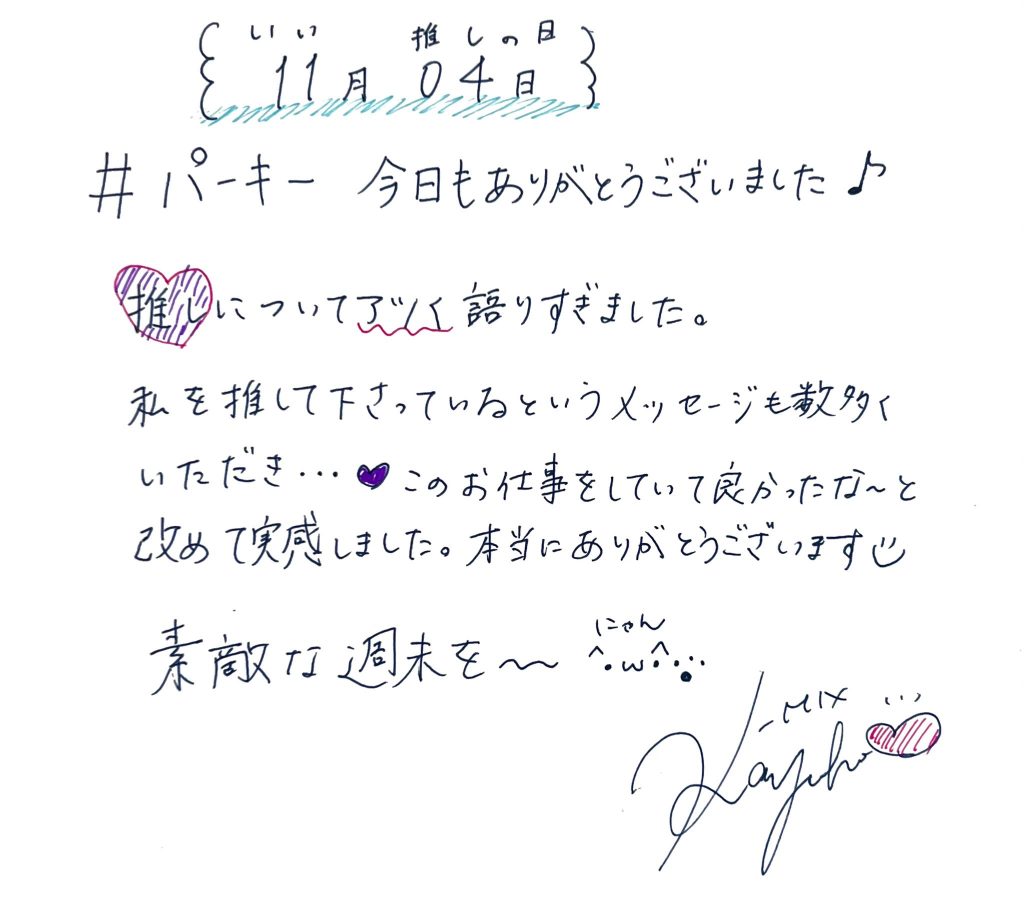 いい 推しの日
11月 04日
#パーキー 今日もありがとうございました♪
推しについてアツく語りすぎました。
私を推して下さっているというメッセージも数多く
いただき…このお仕事をしていて良かったな〜と
改めて実感しました。本当にありがとうございます
素敵な週末を〜 ^・ω^・
にゃん
-MIX